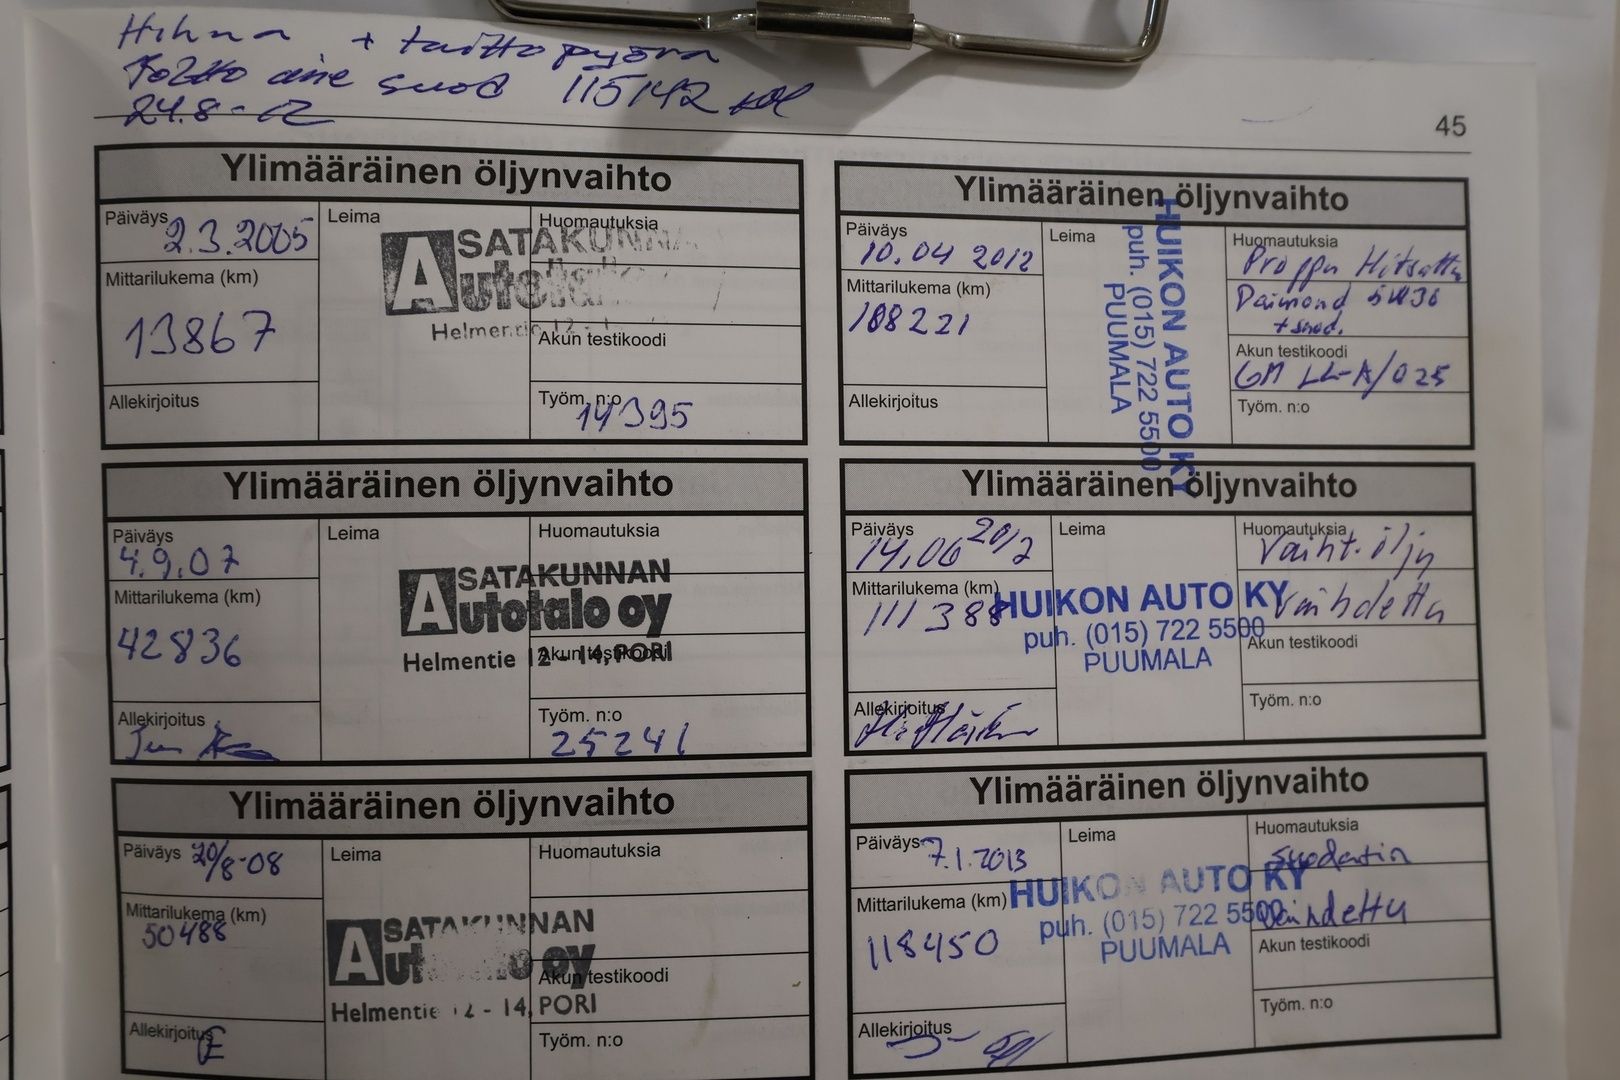 Hihna + taittopyörä
Poltto aine suod 115142
24.8-12
45
Ylimääräinen öljynvaihto
Päiväys 2.3.2005
Leima
Huomautuksia
SATAKUNNAN
Autotalo
Mittarilukema (km)
13867
Helmentie 12 - 1
Akun testikoodi
Allekirjoitus
Työm. n:o 14395
Ylimääräinen öljynvaihto
Päiväys 10.04 2012
Leima
HUIKON AUTO KY
puh. (015) 722 5500
PUUMALA
Huomautuksia
Proppu Hitsattu
Daimond 5W30
+ suod.
Mittarilukema (km)
108221
Akun testikoodi
GM LL-A/025
Allekirjoitus
Työm. n:o
Ylimääräinen öljynvaihto
Päiväys 4.9.07
Leima
Huomautuksia
SATAKUNNAN
Autotalo oy
Helmentie 12 - 14, PORI
Mittarilukema (km)
42836
Akun testikoodi
Allekirjoitus
Työm. n:o
25241
Ylimääräinen öljynvaihto
Päiväys 14.06 2012
Leima
Huomautuksia
Vaiht. öljy
vaihdettu
Mittarilukema (km)
111388
HUIKON AUTO KY
puh. (015) 722 5500
PUUMALA
Akun testikoodi
Allekirjoitus
Työm. n:o
Ylimääräinen öljynvaihto
Päiväys 20/8-08
Leima
Huomautuksia
Mittarilukema (km)
50488
SATAKUNNAN
Autotalo oy
Helmentie 12 - 14, PORI
Akun testikoodi
Allekirjoitus
Työm. n:o
Ylimääräinen öljynvaihto
Päiväys 7.1.2013
Leima
Huomautuksia
suodatin
vaihdettu
Mittarilukema (km)
118450
HUIKON AUTO KY
puh. (015) 722 5500
PUUMALA
Akun testikoodi
Allekirjoitus
Työm. n:o